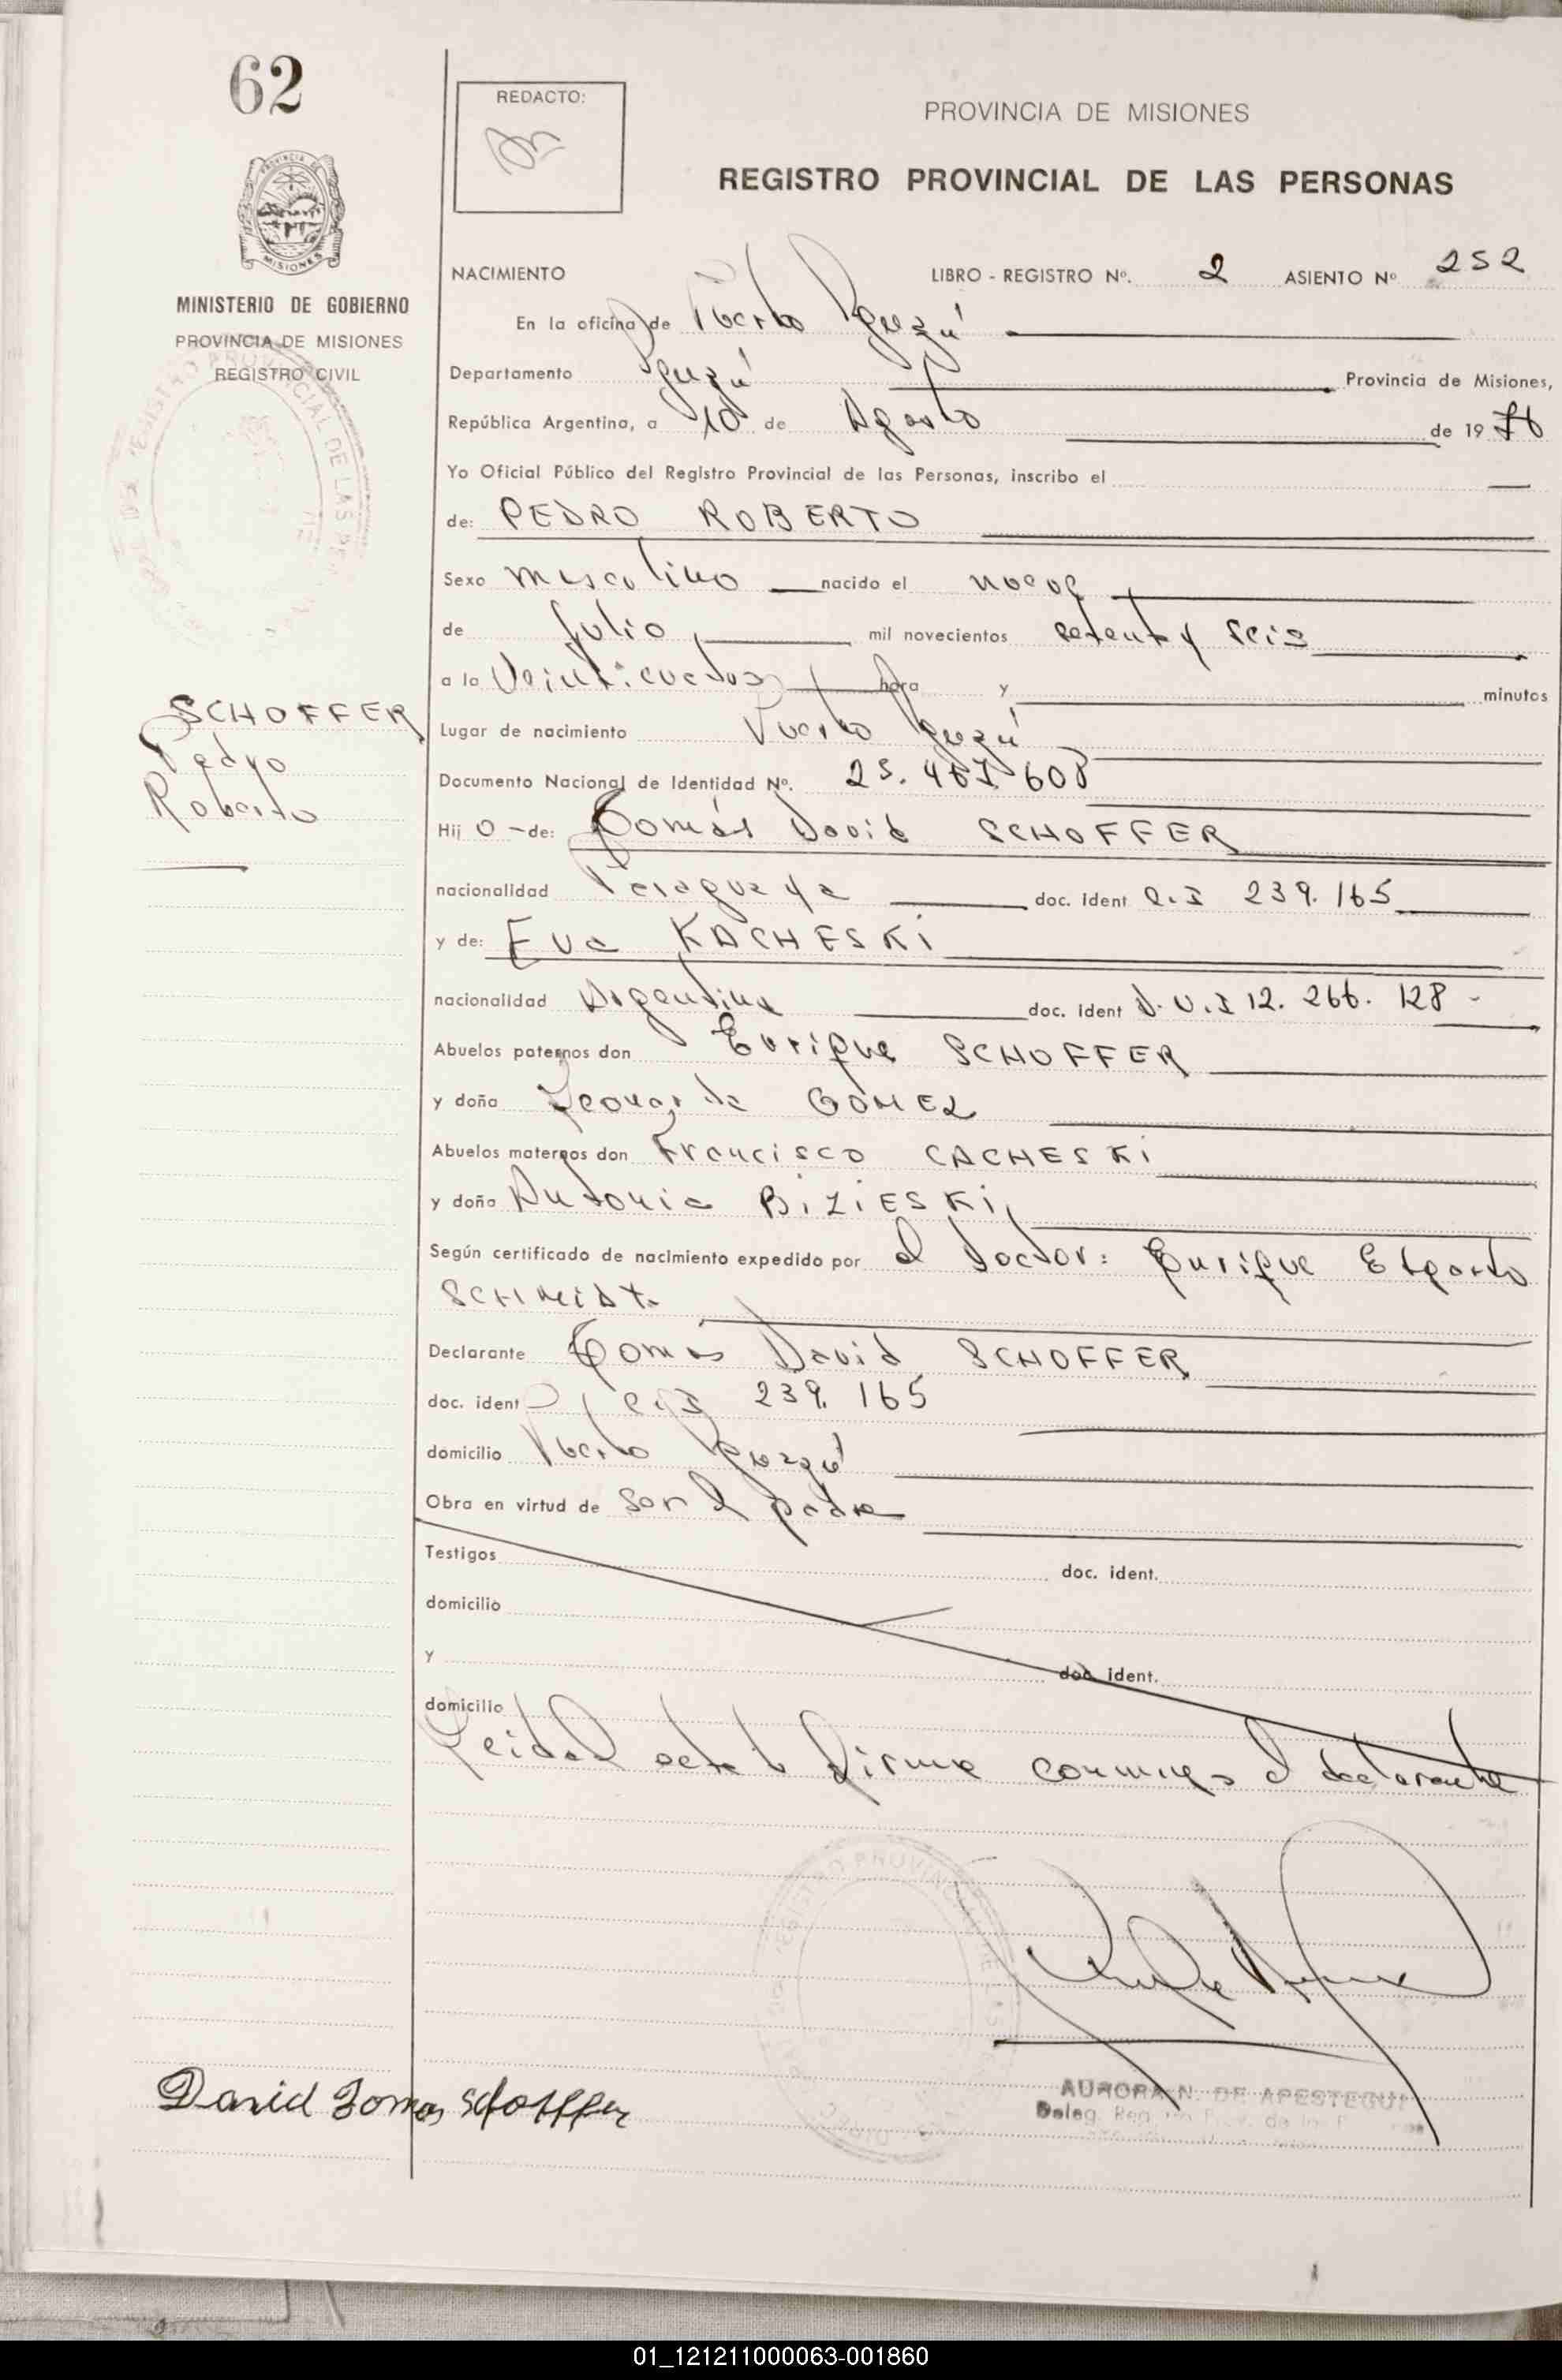 62
REDACTO:
PROVINCIA DE MISIONES
REGISTRO PROVINCIAL DE LAS PERSONAS
PROVINCIA DE
MISIONES
MINISTERIO DE GOBIERNO
PROVINCIA DE MISIONES
REGISTRO CIVIL
NACIMIENTO LIBRO - REGISTRO Nº. 2 ASIENTO Nº 252
En la oficina de Puerto Iguazú
Departamento Iguazú Provincia de Misiones,
República Argentina, a 10 de Agosto de 1976
Yo Oficial Público del Registro Provincial de las Personas, inscribo el
de: PEDRO ROBERTO
Sexo masculino nacido el nueve
de Julio mil novecientos setenta y seis
a la Veinticuatro hora y minutos
SCHOFFER
Pedro
Roberto
Lugar de nacimiento Puerto Iguazú
Documento Nacional de Identidad Nº. 25.467.608
Hij o de: Tomás David SCHOFFER
nacionalidad Paraguaya doc. Ident C.I 239.165
y de: Eva KACHESKi
nacionalidad Argentina doc. Ident D.N.I 12.266.128
Abuelos paternos don Enrique SCHOFFER
y doña Leonarda GOMEZ
Abuelos maternos don Francisco CACHESKi
y doña Antonia BiZiESKi
Según certificado de nacimiento expedido por el Doctor: Enrique Edgardo
SCHMiDT
Declarante Tomas David SCHOFFER
doc. ident C.I 239.165
domicilio Puerto Iguazú
Obra en virtud de ser el padre
Testigos doc. ident.
domicilio
y doc. ident.
domicilio
Leida el acta la firma conmigo el declarante
David Tomas Schoffer
AURORA N. DE APESTEGUI
Deleg. Reg.
01_121211000063-001860